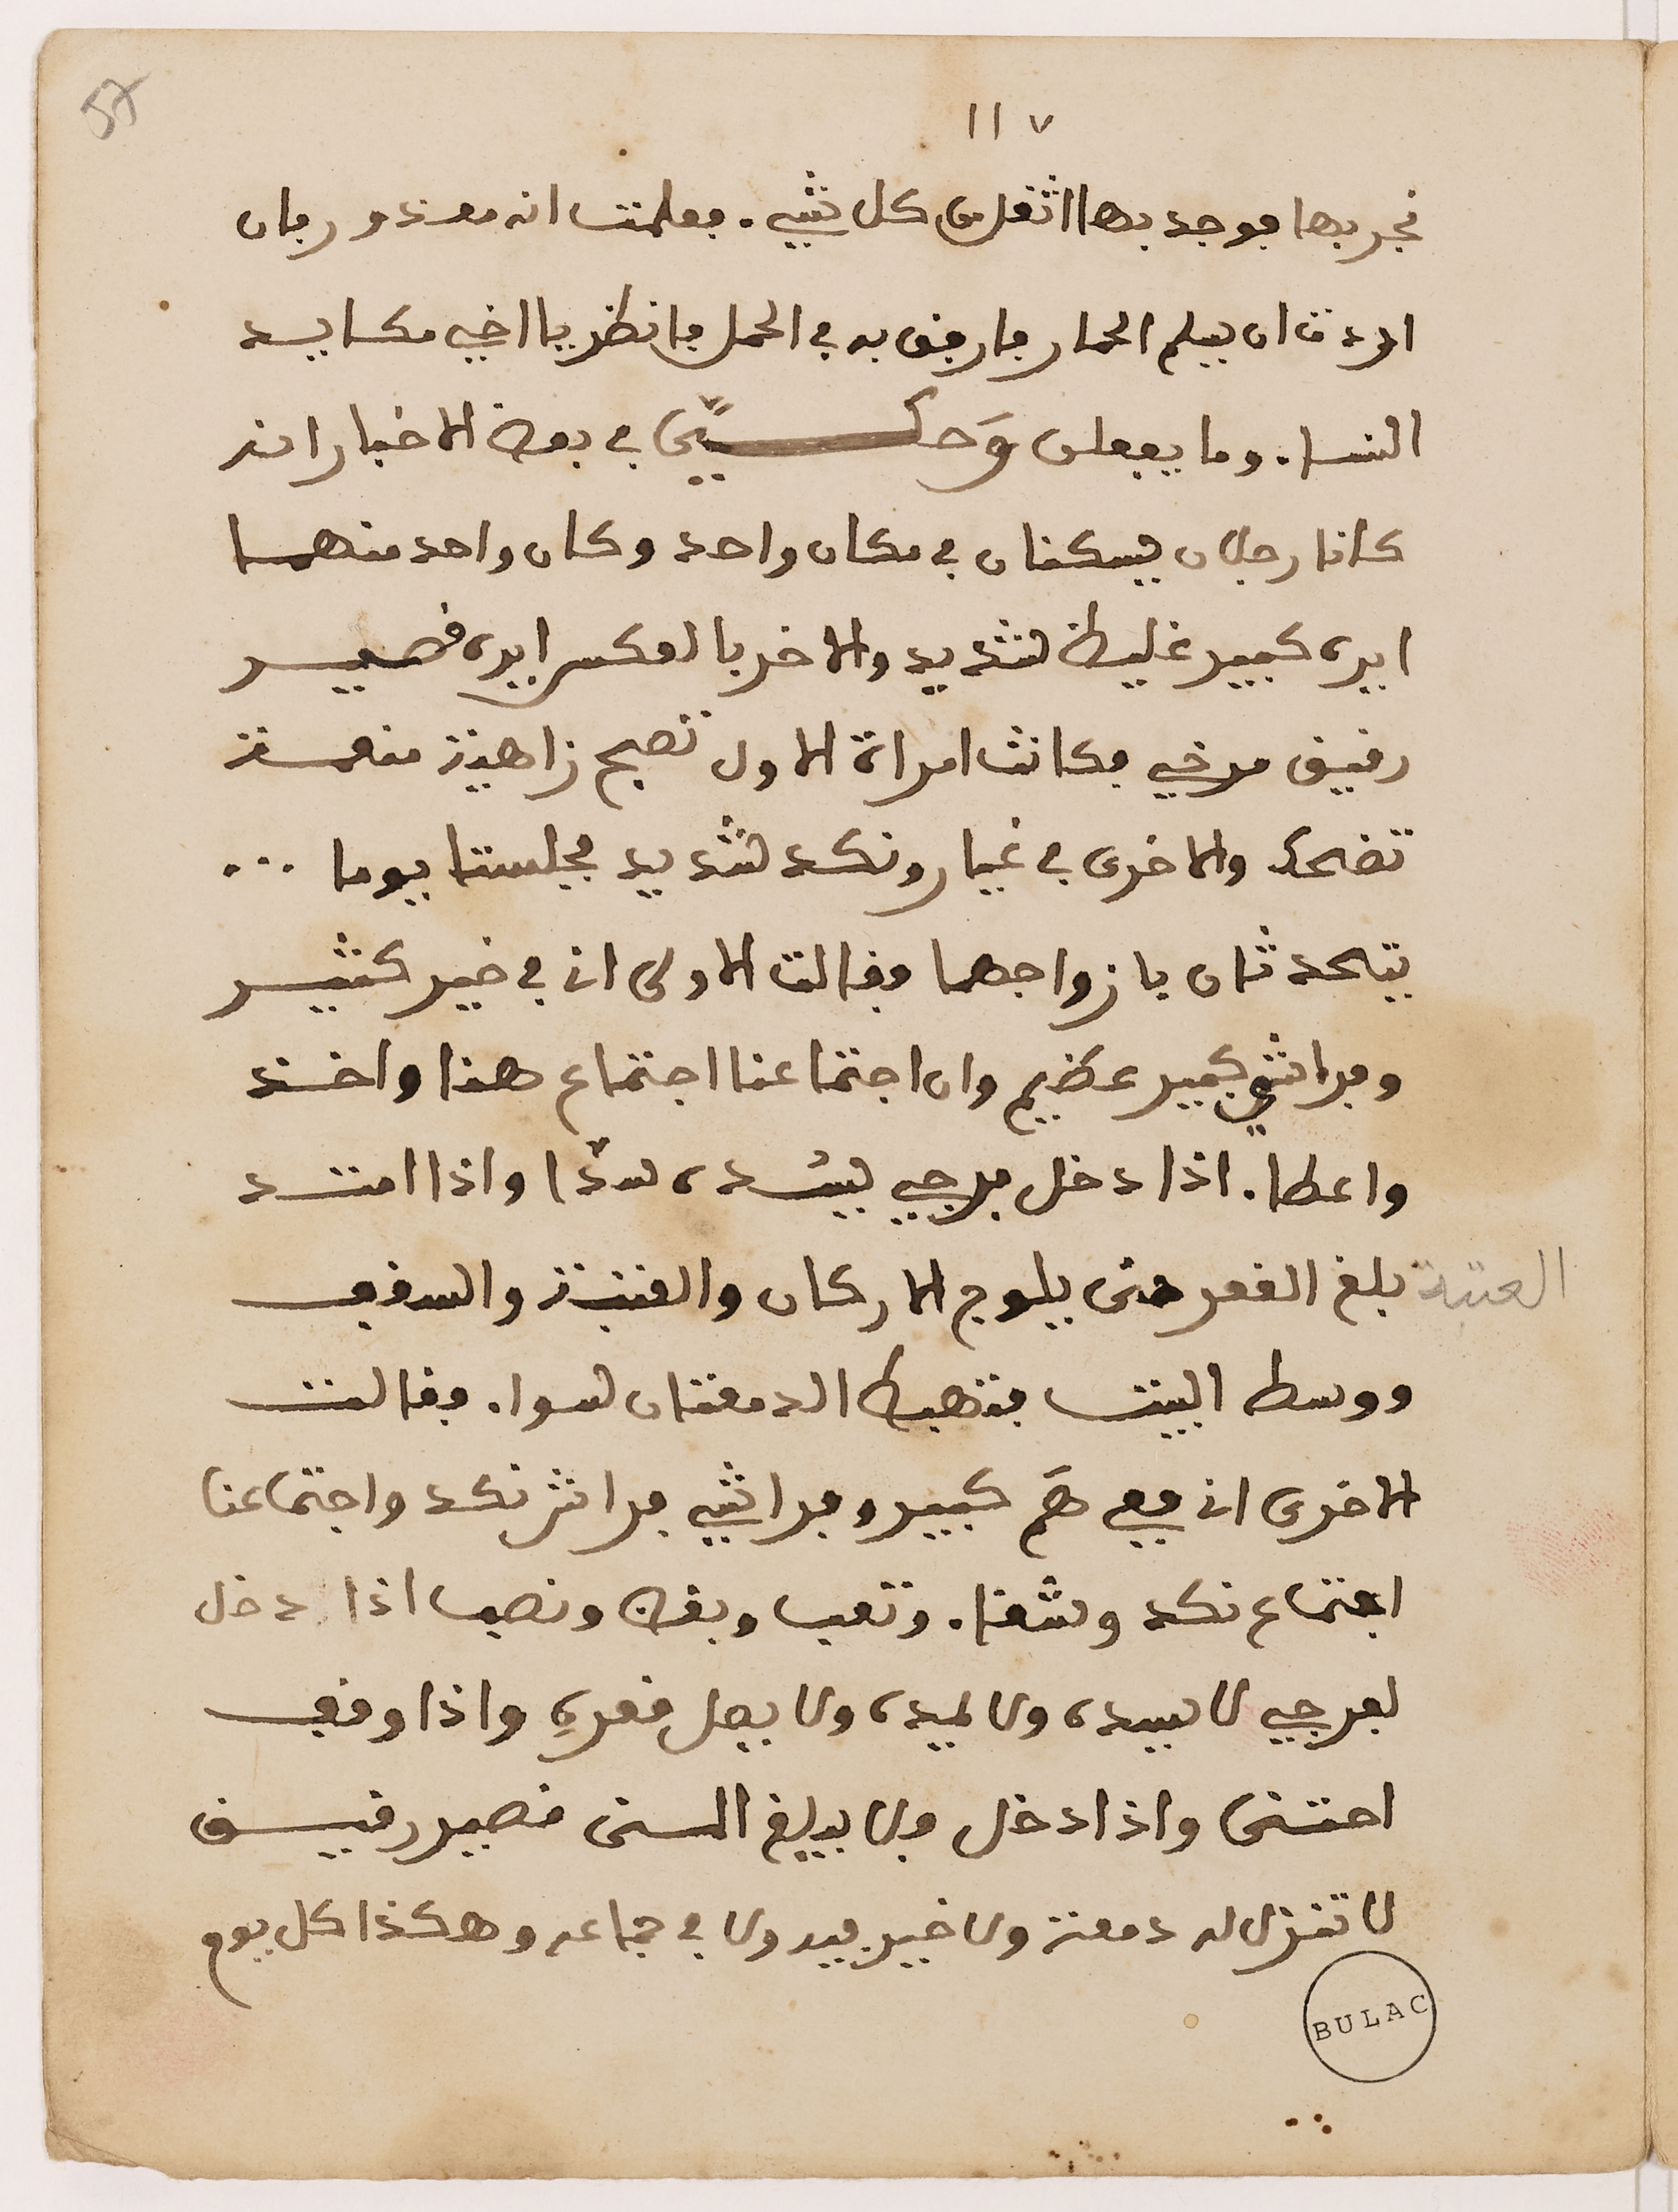 57
١١٧
فجربها فوجد بها اثقل من كل شيي. فعلمت انه معذور فان
اردت ان يسلم الحمار فارفق به في الحمل فانظر يا اخي مكايد
النسا. وما يفعلن وَحكِيّ في بعض الاخبار انه
كانا رجلان يسكنان في مكان واحد وكان واحد منهما
ايره كبير غليظ شديد والاخر بالعكس ايره قصير
رقيق مرخي فكانت امراة الاول تصبح زاهية منعمة
تضحك والاخرى في غيار ونكد شديد فجلستا يوما ...
يتحدثان بازواجهما فقالت الاولى انا في خير كثير
وفراشي كبير عظيم وان اجتماعنا اجتماع هنا واخذ
واعطا. اذا دخل فرجي يسده سدّا واذا امتد
بلغ القعر حتى يلوج الاركان والعتبة والسقف
العتبة
ووسط البيت فتهبط الدمعتان سوا. فقالت
الاخرى انا معي هَم كبير وفراشي فراش نكد واجتماعنا
اجتماع نكد وشقا. وتعب وبغض ونصب اذا دخل
لفرجي لا يسده ولا يمده ولا يصل قعره واذا وقف
احتنى واذا دخل فلا يبلغ المنى قصير رقيق
لا تنزل له دمعة ولا خير فيه ولا في جماعه وهكذا كل يوم
BULAC